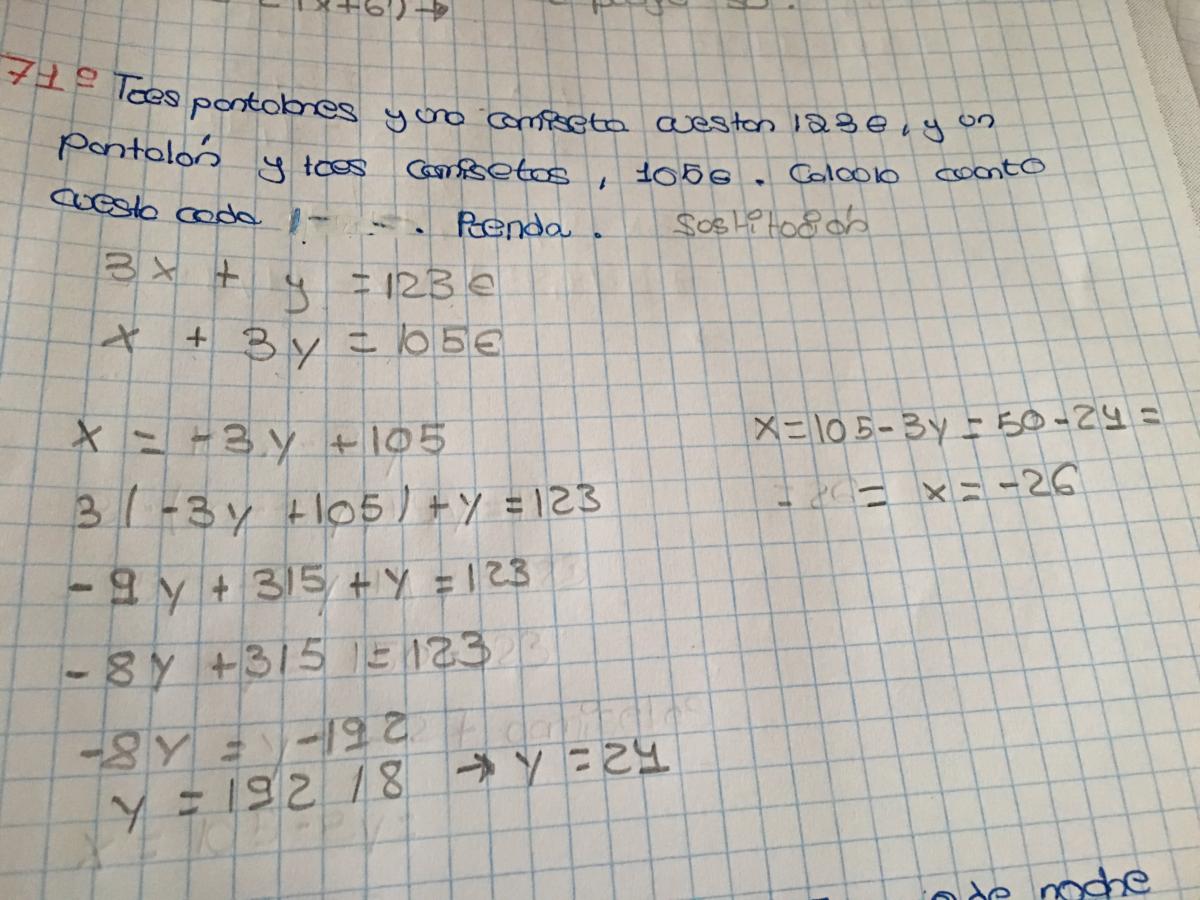 (x+6)→
71º Tres pantalones y una camiseta cuestan 123€, y un
pantalón y tres camisetas, 105€. Calcula cuanto
cuesta cada Prenda. Sustitución
3x + y = 123€
x + 3y = 105€
x = -3y + 105
3(-3y + 105) + y = 123
-9y + 315 + y = 123
-8y + 315 = 123
-8y = -192
y = 192 / 8 → y = 24
x = 105 - 3y = 50 - 24 =
= x = -26
de noche